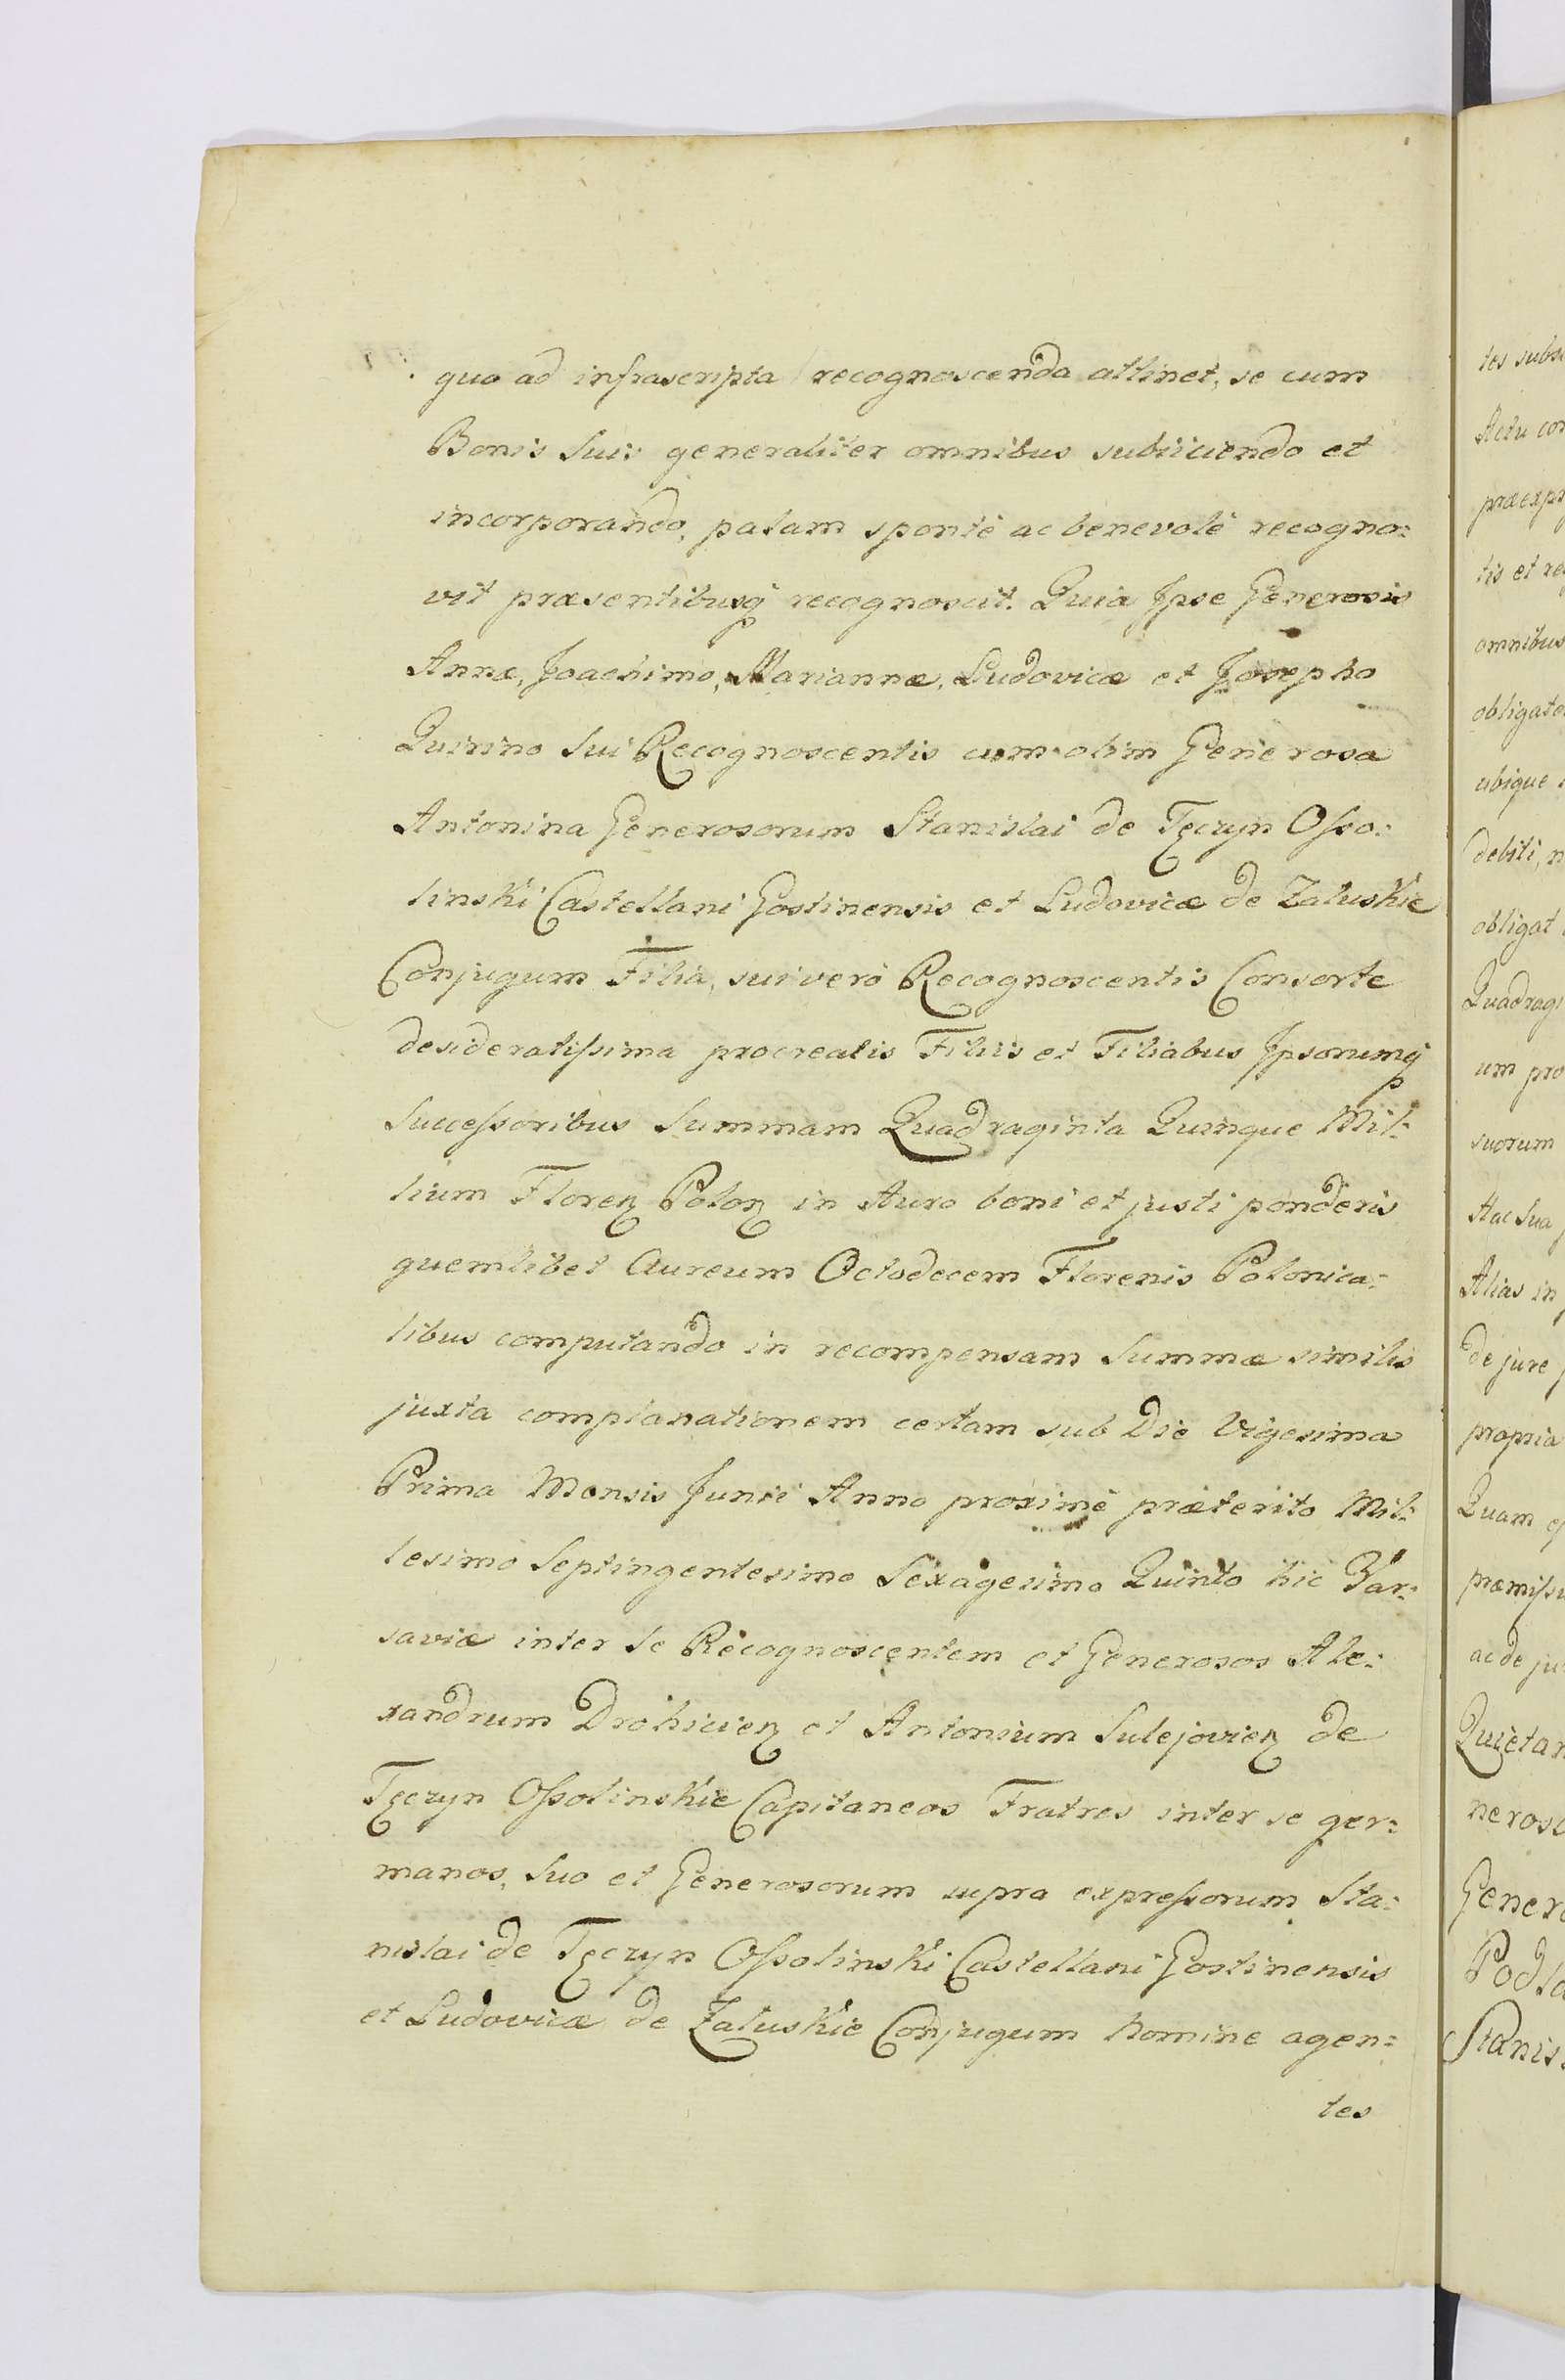 quo ad infrascripta recognoscenda attinet, se cum
Bonis Suis generaliter omnibus subiiciendo et
incorporando, palam sponte ac benevole recogno:
vit præsentibusq recognoscit. Quia Ipse Generosis
Annæ, Joachimo, Mariannæ, Ludovicæ et Josepho
Quirino Sui Recognoscentis cum olim Generosa
Antonina Generosorum Stanislai de Tęczyn Osso:
linski Castellani Gostinensis et Ludovicæ de Zaluskie
Conjugum Filia, sui vero Recognoscentis Consorte
desideratissima procreatis Filiis et Filiabus Ipsorumq
Successoribus Summam Quadraginta Quinque Mil:
lium Floren Polon in Auro boni et justi ponderis
quemlibet Aureum Octodecem Florenis Polonica:
libus computando in recompensam Summæ similis
juxta complanationem certam sub Die Vigesima
Prima Mensis Junii Anno proxime præterito Mil:
lesimo Septingentesimo Sexagesimo Quinto hic Var:
saviæ inter Se Recognoscentem et Generosos Ale:
xandrum Drohicien et Antonium Sulejovien de
Tęczyn Ossolinskie Capitaneos Fratres inter se ger:
manos, Suo et Generosorum supra expressorum Sta:
nislai de Tęczyn Ossolinski Castellani Gostinensis
et Ludovicæ de Zaluskie Conjugum Nomine agen:
tes
tes subs
Actu con
præexpr
tis et re
omnibus
obligato
ubique
debiti, n
obligat
Quadragi
um pro
suorum
Hac Sua
Alias in
de jure
propria
Quam
præmissu
ac de ju
Quietan
neroso
Genero
Podla
Stanis